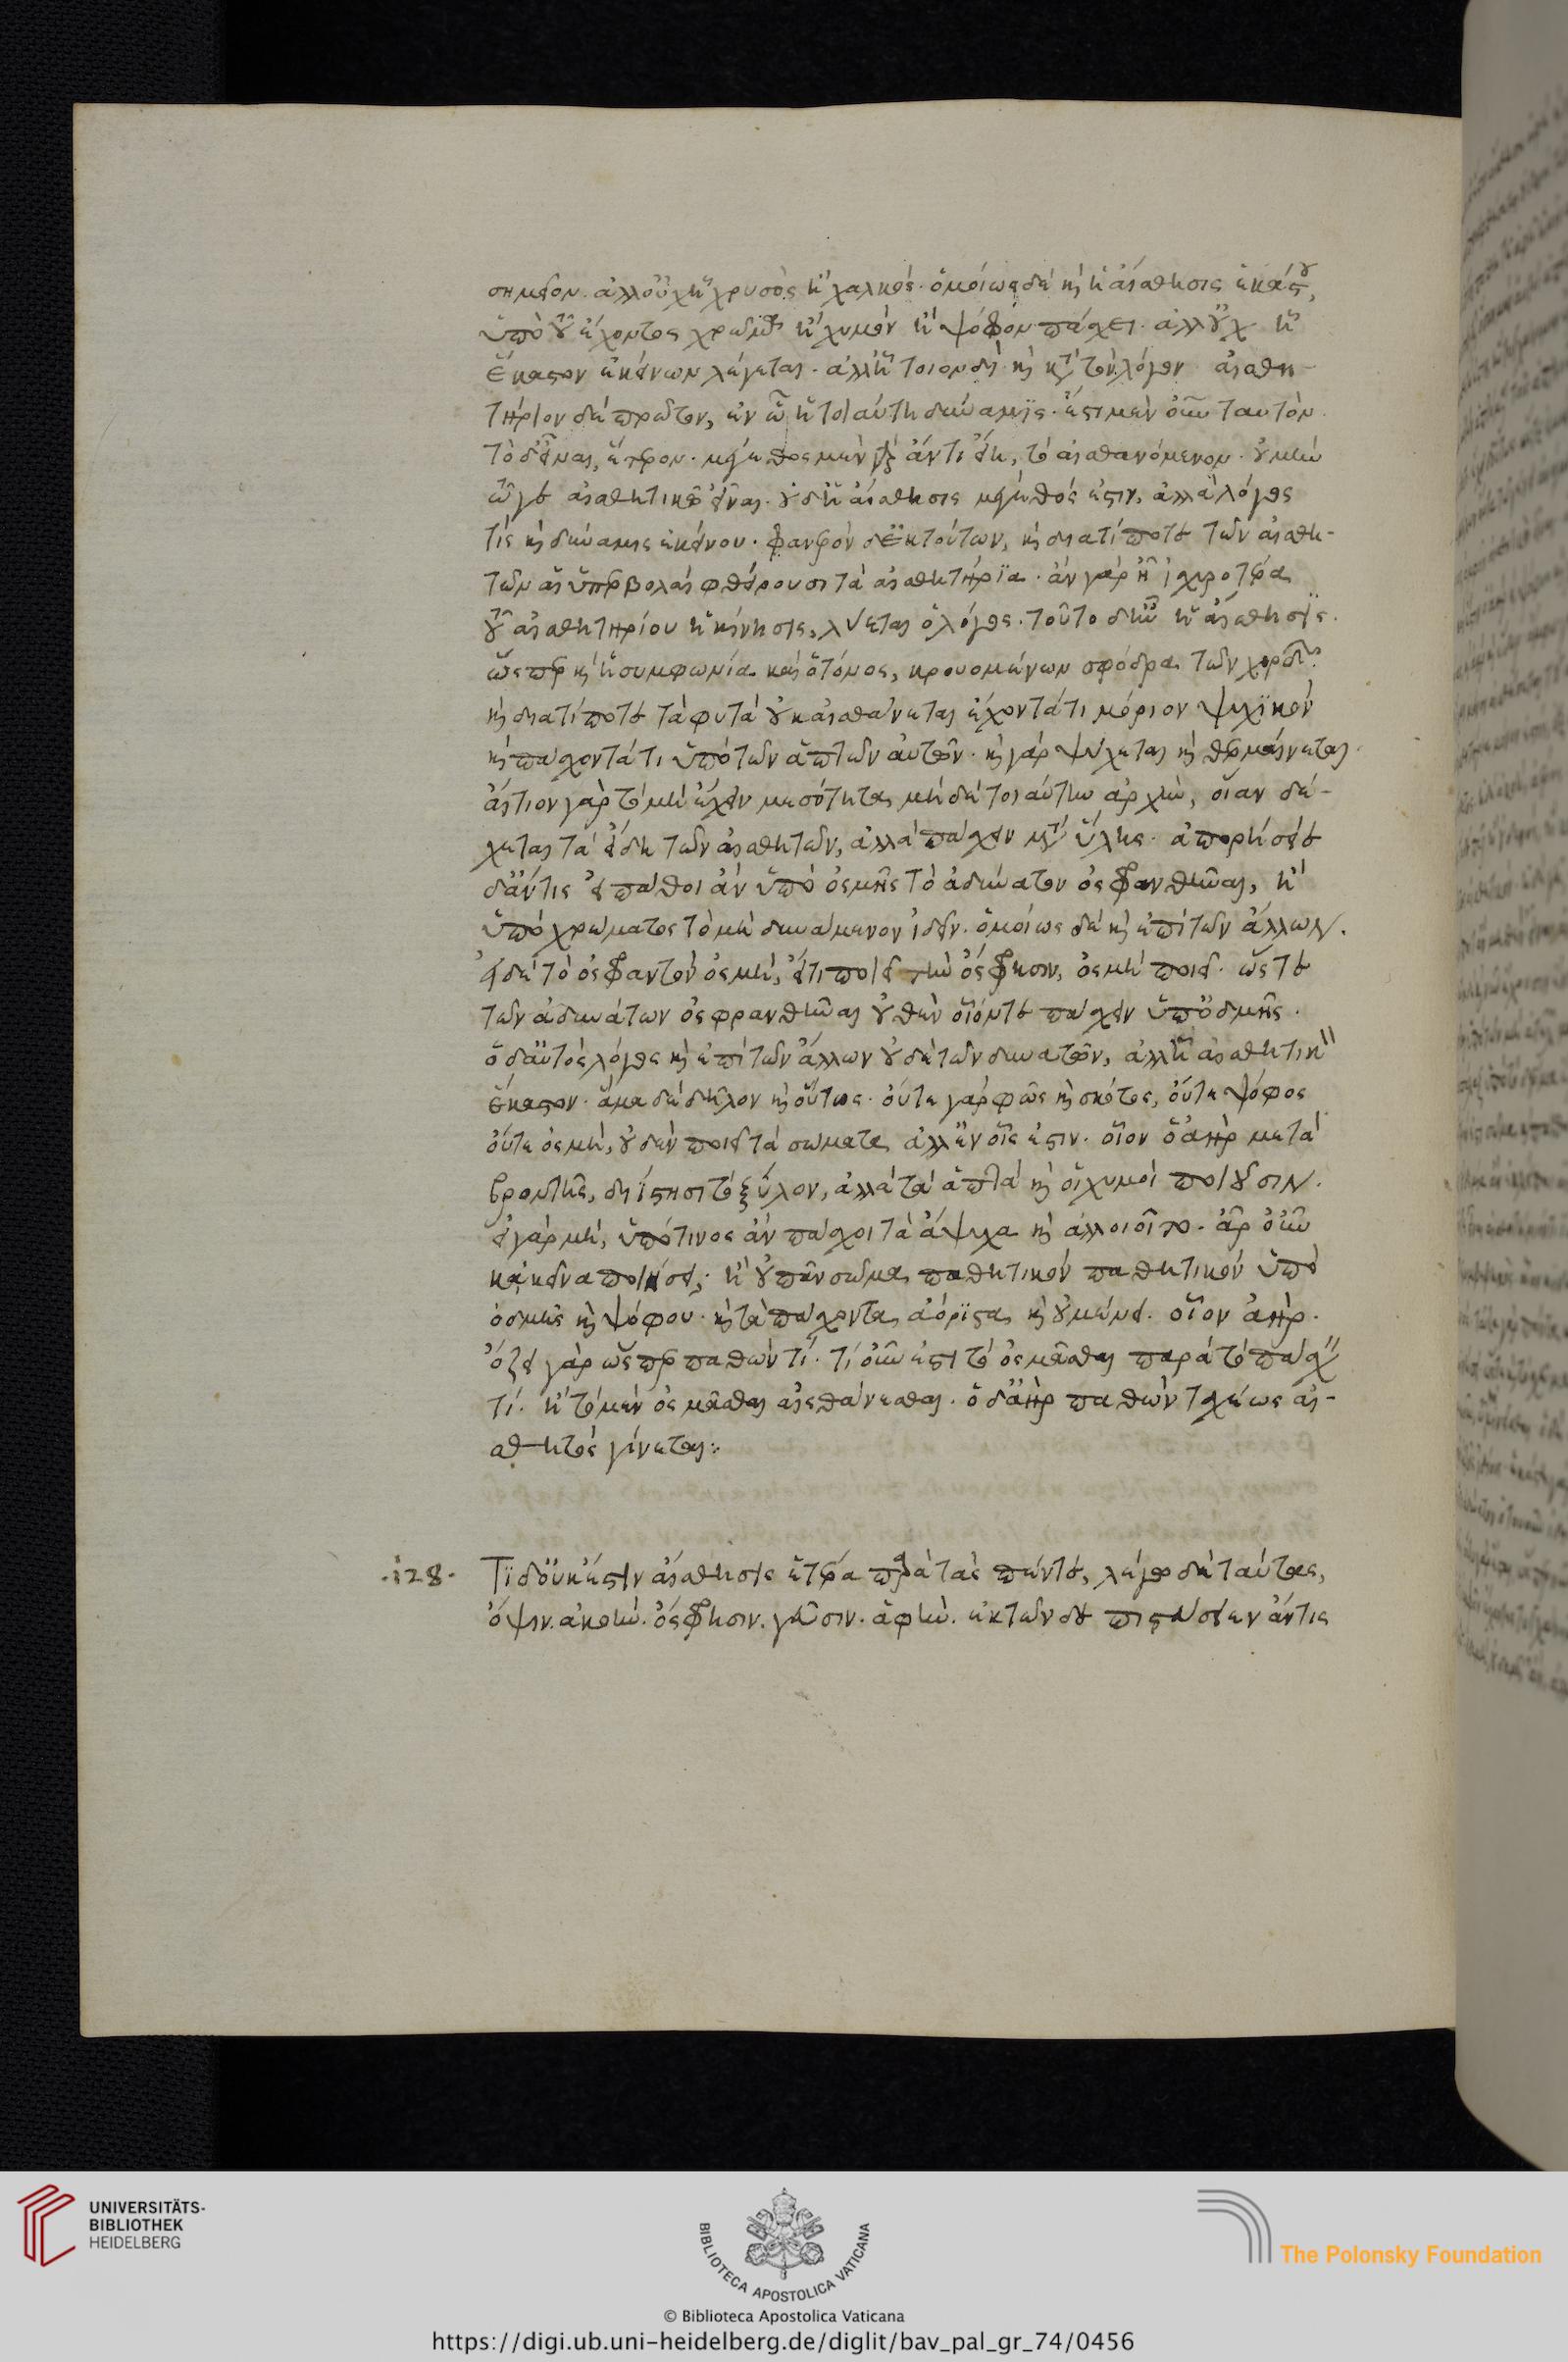 σημεῖον. ἀλλ' οὐχ ᾗ χρυσὸς ἢ χαλκός. ὁμοίως δὲ καὶ ἡ αἴσθησις ἑκάστου,
ὑπὸ τοῦ ἔχοντος χρῶμα ἢ χυμὸν ἢ ψόφον πάσχει. ἀλλ' οὐχ ᾗ
ἕκαστον ἐκείνων λέγεται. ἀλλ' ᾗ τοιονδὶ καὶ κατὰ τὸν λόγον αἰσθη-
τήριον δὲ πρῶτον, ἐν ᾧ ἡ τοιαύτη δύναμις. ἔστι μὲν οὖν ταυτὸν
τὸ δ' εἶναι, ἕτερον. μέγεθος μὲν γὰρ ἄν τι εἴη, τὸ αἰσθανόμενον. οὐ μὴν
τῷ γε αἰσθητικῷ εἶναι. οὐδ' ἡ αἴσθησις μέγεθός ἐστιν, ἀλλὰ λόγος
τὶς καὶ δύναμις ἐκείνου. φανερὸν δ' ἐκ τούτων, καὶ διατί ποτε τῶν αἰσθη-
τῶν αἱ ὑπερβολαὶ φθείρουσι τὰ αἰσθητήρια. ἂν γὰρ ᾖ ἰσχυροτέρα
τοῦ αἰσθητηρίου ἡ κίνησις, λύεται ὁ λόγος. τοῦτο δ' ἦν ἡ αἴσθησις.
ὥσπερ καὶ ἡ συμφωνία καὶ ὁ τόνος, κρουομένων σφόδρα τῶν χορδῶν.
καὶ διατί ποτε τὰ φυτὰ οὐκ αἰσθάνεται ἔχοντά τι μόριον ψυχικὸν
καὶ πάσχοντά τι ὑπὸ τῶν ἁπτῶν αὐτῶν. καὶ γὰρ ψύχεται καὶ θερμαίνεται.
αἴτιον γὰρ τὸ μὴ ἔχειν μεσότητα, μὴ δὲ τοιαύτην ἀρχὴν, οἵαν δέ-
χεται τὰ εἴδη τῶν αἰσθητῶν, ἀλλὰ πάσχειν μετὰ ὕλης. ἀπορήσειε
δ' ἄν τις εἰ πάθοι ἂν ὑπὸ ὀσμῆς τὸ ἀδύνατον ὀσφρανθῆναι, ἢ
ὑπὸ χρώματος τὸ μὴ δυνάμενον ἰδεῖν. ὁμοίως δὲ καὶ ἐπὶ τῶν ἄλλων.
εἰ δὲ τὸ ὀσφραντὸν ὀσμὴ, εἴ τι ποιεῖ τὴν ὄσφρησιν, ὀσμὴ ποιεῖ. ὥστε
τῶν ἀδυνάτων ὀσφρανθῆναι οὐθὲν οἷόν τε πάσχειν ὑπ' ὀσμῆς.
ὁ δ' αὐτὸς λόγος καὶ ἐπὶ τῶν ἄλλων οὐδὲ τῶν δυνατῶν, ἀλλ' ᾗ αἰσθητικὸν
ἕκαστον. ἅμα δὲ δῆλον καὶ οὕτως. οὔτε γὰρ φῶς καὶ σκότος, οὔτε ψόφος
οὔτε ὀσμὴ, οὐδὲν ποιεῖ τὰ σώματα ἀλλ' ἐν οἷς ἐστιν. οἷον ὁ ἀὴρ μετὰ
βροντῆς, διίστησι τὸ ξύλον, ἀλλὰ τὰ ἁπτὰ καὶ οἱ χυμοὶ ποιοῦσιν.
εἰ γὰρ μὴ, ὑπό τινος ἂν πάσχοι τὰ ἄψυχα καὶ ἀλλοιοῖτο. ἆρ' οὖν
κἀκεῖνα ποιήσει, ἢ οὐ πᾶν σῶμα παθητικὸν παθητικὸν ὑπὸ
ὀσμῆς καὶ ψόφου. καὶ τὰ πάσχοντα, ἀόριστα, καὶ οὐ μένει. οἷον ἀήρ.
ὄζει γὰρ ὥσπερ παθών τι. τί οὖν ἐστι τὸ ὀσμᾶσθαι παρὰ τὸ πάσχειν
τί. ἢ τὸ μὲν ὀσμᾶσθαι αἰσθάνεσθαι. ὁ δ' ἀὴρ παθὼν ταχέως αἰ-
σθητὸς γίνεται:
·128· Τὶ δ' οὐκ ἔστιν αἴσθησις ἑτέρα παρὰ τὰς πέντε, λέγω δὲ ταύτας,
ὄψιν. ἀκοὴν. ὄσφρησιν. γεῦσιν. ἁφὴν. ἐκ τῶνδε πιστεύσειεν ἄν τις
UNIVERSITÄTS-
BIBLIOTHEK
HEIDELBERG
BIBLIOTECA APOSTOLICA VATICANA
The Polonsky Foundation
© Biblioteca Apostolica Vaticana
https://digi.ub.uni-heidelberg.de/diglit/bav_pal_gr_74/0456